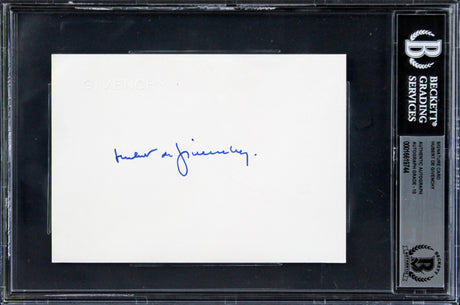 GIVENCHY
Hubert de Givenchy.
BECKETT®
GRADING
SERVICES
SIGNATURE CARD
HUBERT DE GIVENCHY
AUTHENTIC AUTOGRAPH
AUTOGRAPH GRADE - 10
00016619744